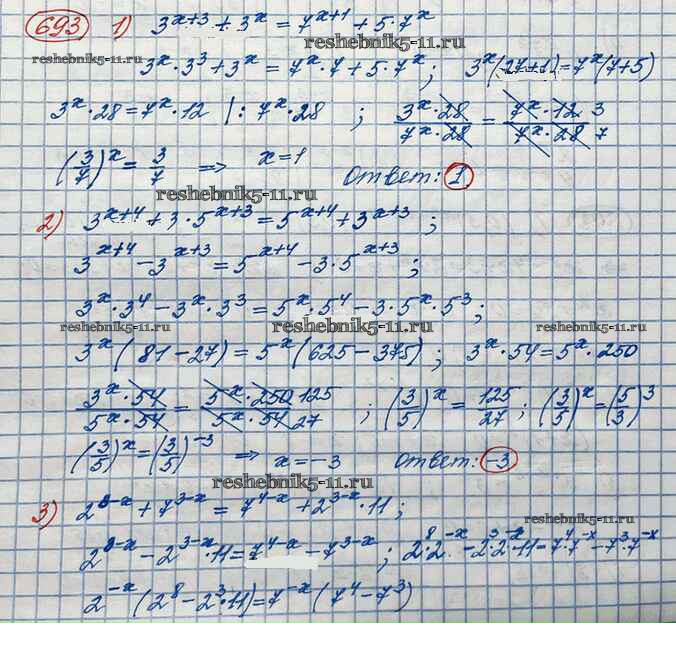 693 1) 3^(x+3) + 3^x = 7^(x+1) + 5·7^x
reshebnik5-11.ru
reshebnik5-11.ru reshebnik5-11.ru
3^x·3^3 + 3^x = 7^x·7 + 5·7^x ; 3^x(27+1) = 7^x(7+5)
3^x·28 = 7^x·12 |: 7^x·28 ; (3^x·28)/(7^x·28) = (7^x·12 3)/(7^x·28 7)
(3/7)^x = 3/7 ⇒ x=1 Ответ: 1
reshebnik5-11.ru
2) 3^(x+4) + 3·5^(x+3) = 5^(x+4) + 3^(x+3) ;
3^(x+4) − 3^(x+3) = 5^(x+4) − 3·5^(x+3) ;
3^x·3^4 − 3^x·3^3 = 5^x·5^4 − 3·5^x·5^3 ;
reshebnik5-11.ru reshebnik5-11.ru reshebnik5-11.ru
3^x(81−27) = 5^x(625−375) ; 3^x·54 = 5^x·250
(3^x·54)/(5^x·54) = (5^x·250 125)/(5^x·54 27) ; (3/5)^x = 125/27 ; (3/5)^x = (5/3)^3
(3/5)^x = (3/5)^(−3) ⇒ x=−3 Ответ: −3
reshebnik5-11.ru
3) 2^(8−x) + 7^(3−x) = 7^(4−x) + 2^(3−x)·11 ;
reshebnik5-11.ru
2^(8−x) − 2^(3−x)·11 = 7^(4−x) − 7^(3−x) ; 2^8·2^(−x) − 2^3·2^(−x)·11 = 7^4·7^(−x) − 7^3·7^(−x)
2^(−x)(2^8 − 2^3·11) = 7^(−x)(7^4 − 7^3)